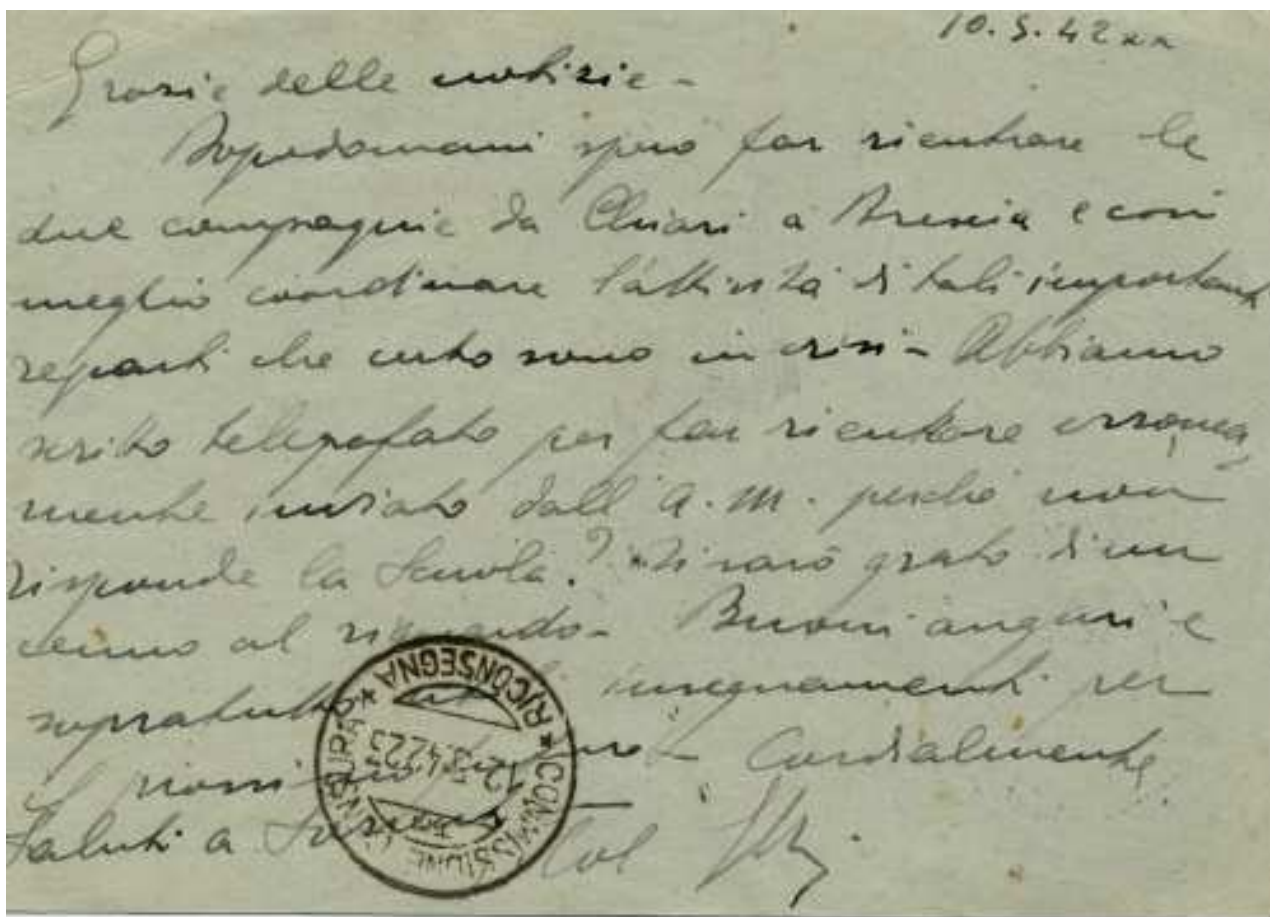 10.5.42 xx
Grazie delle notizie -
Dopodomani spero far rientrare le
due compagnie da Chiari a Brescia e così
meglio coordinare l'attività di tali importanti
reparti che certo sono in crisi - Abbiamo
scritto telegrafato per far rientrare erronea
mente inviato dall' A. M. perché non
risponde la Scuola? Ti sarò grato di un
cenno al riguardo - Buoni auguri e
sopratutto insegnamenti per
il prossimo - Cordialmente
Saluti a
Col
* RICONSEGNA *
COMMISSIONE CENSURA
12.5.42 23